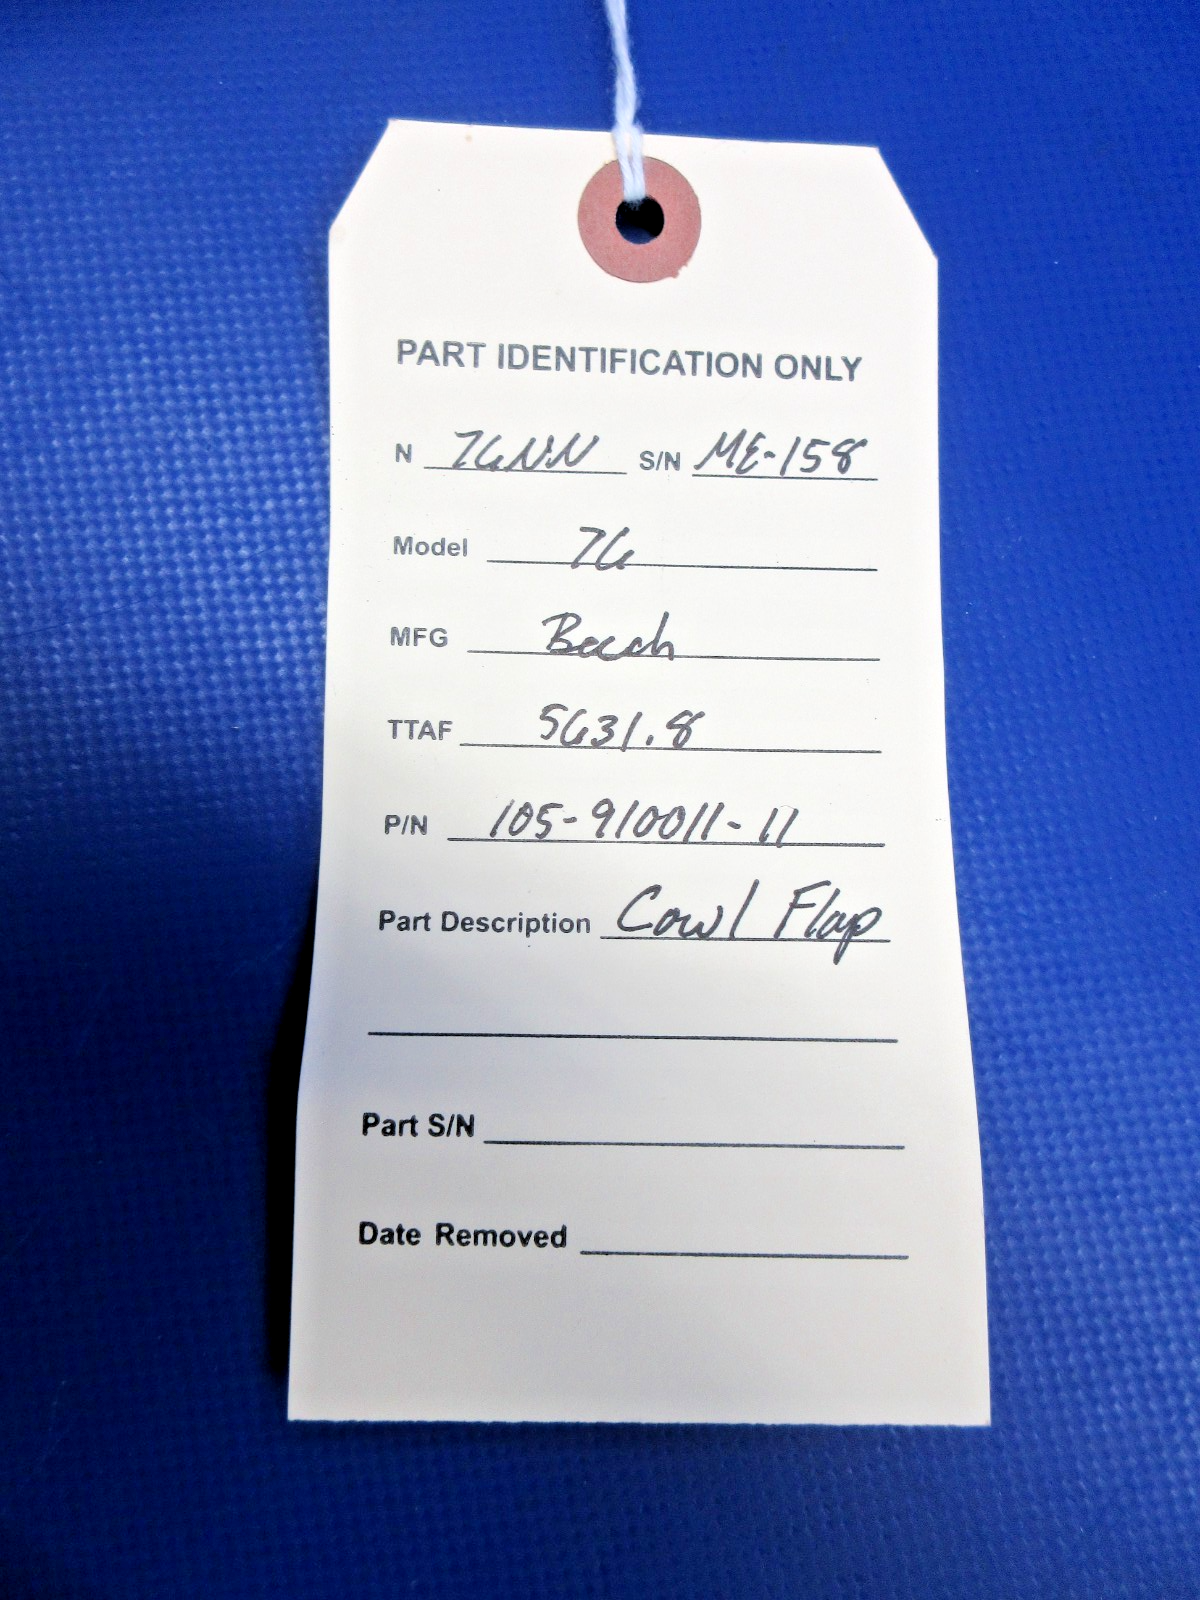 PART IDENTIFICATION ONLY
N 76NN S/N ME-158
Model 76
MFG Beech
TTAF 5631.8
P/N 105-910011-11
Part Description Cowl Flap
Part S/N
Date Removed